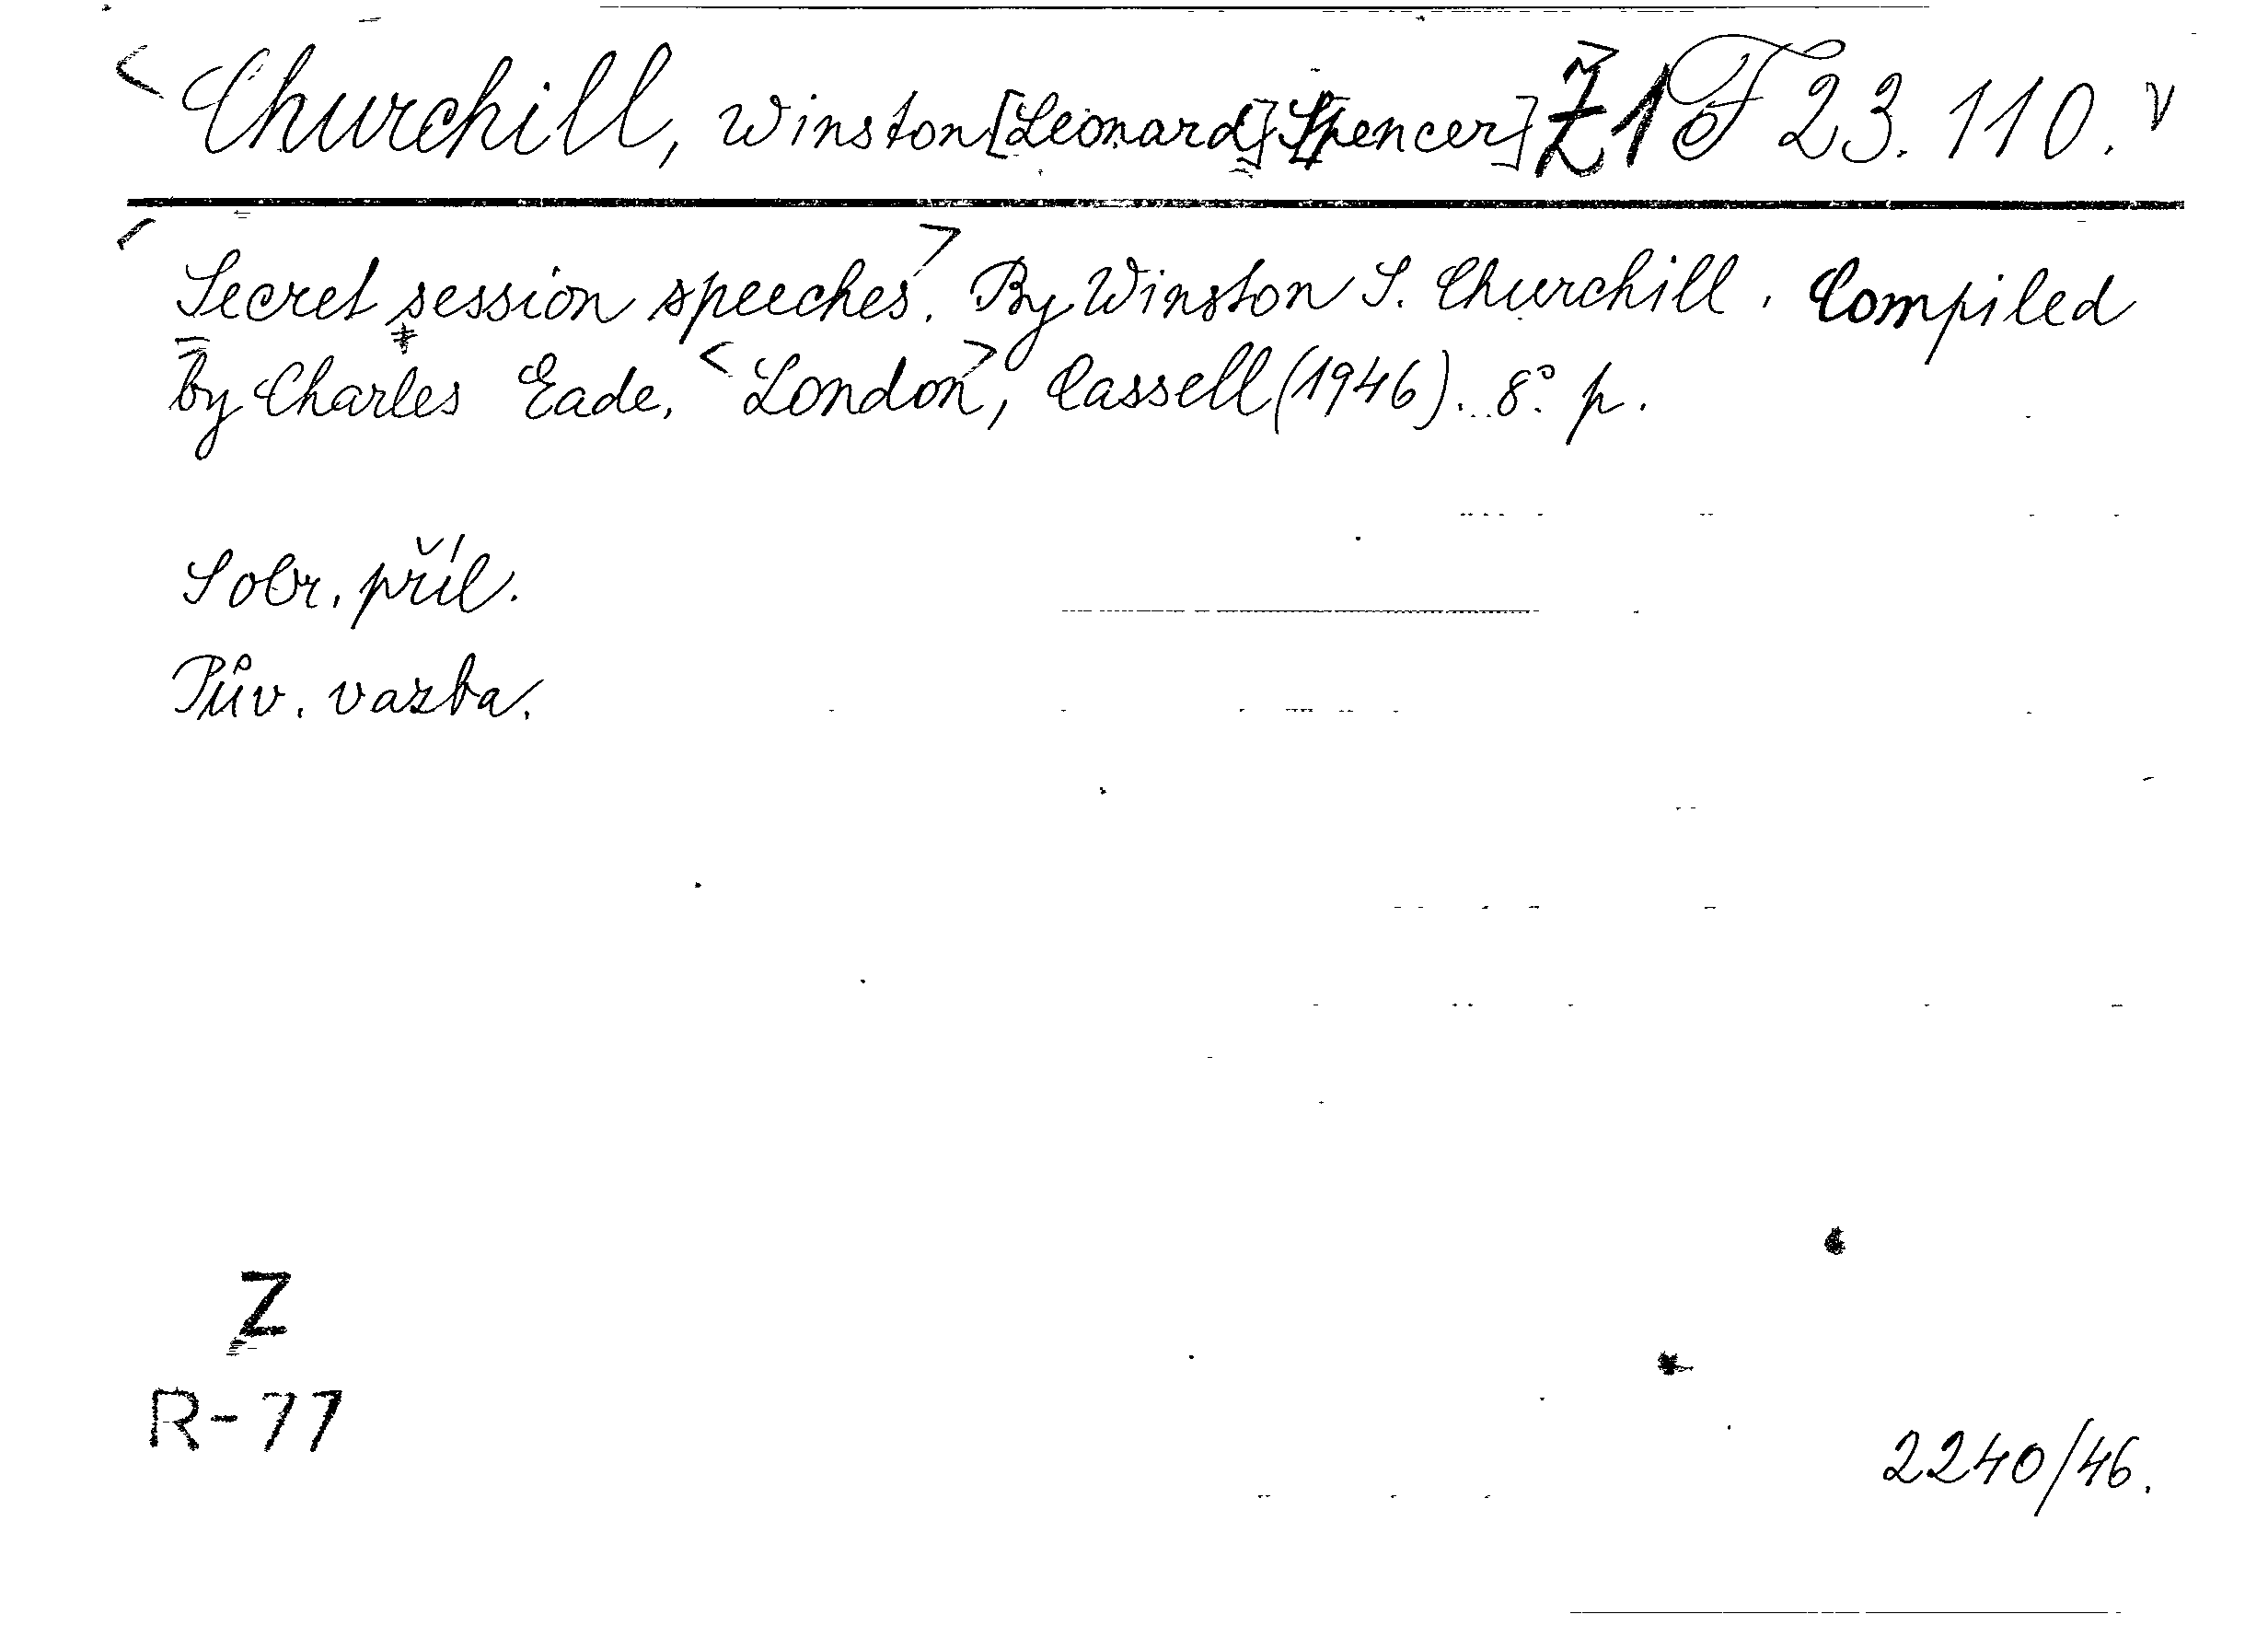 <Churchill, Winston [Leonard] Spencer] Ž1 F 23.110. v
<Secret session speeches.> By Winston S. Churchill. Compiled
by Charles Eade, <London>, Cassell (1946). 8° p.
Sobr. příl.
Pův. vazba.
Z
R-77
2240/46.